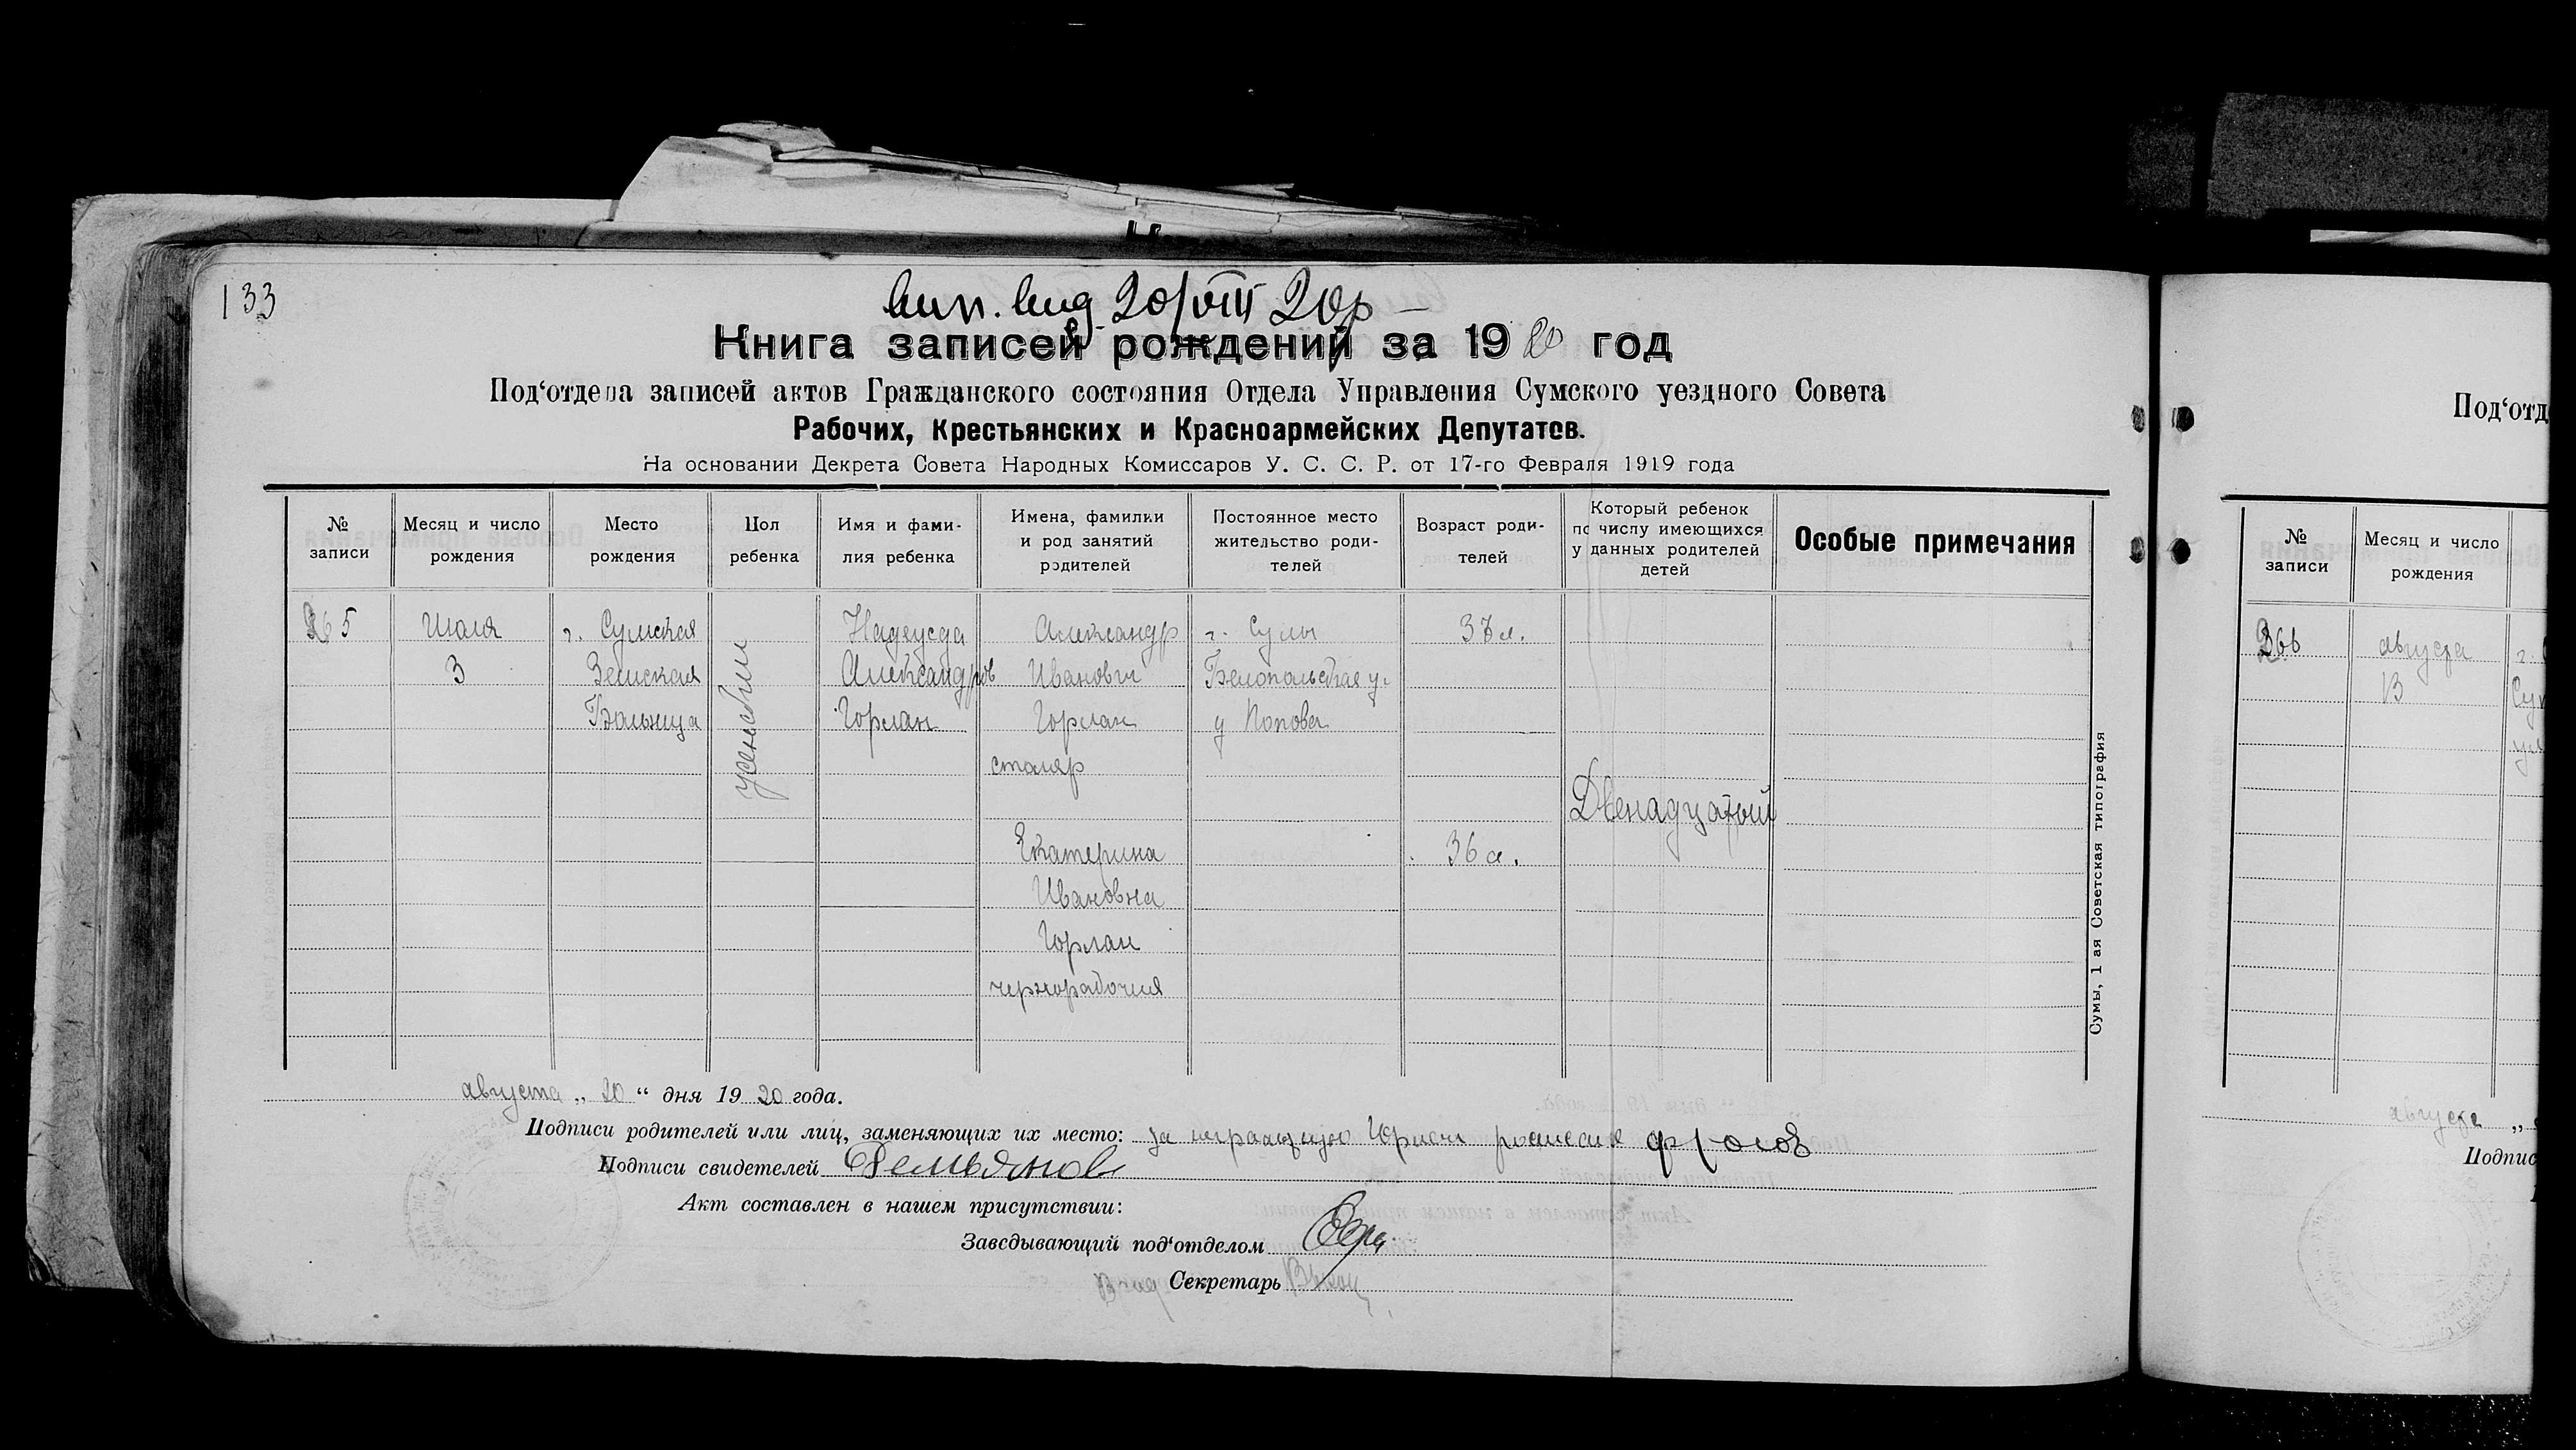 133
20/VIII 20р
Книга записей рождений за 1920 год
Под‘отдела записей актов Гражданского состояния Отдела Управления Сумского уездного Совета
Рабочих, Крестьянских и Красноармейских Депутатов.
На основании Декрета Совета Народных Комиссаров У. С. С. Р. от 17-го Февраля 1919 года
№ записи
Месяц и число рождения
Место рождения
Пол ребенка
Имя и фами-
лия ребенка
Имена, фамилии
и род занятий
родителей
Постоянное место
жительство роди-
телей
Возраст роди-
телей
Который ребенок
по числу имеющихся
у данных родителей
детей
Особые примечания
365
Июля
3
г. Сумская
Земская
Больница
женский
Надежда
Александров
Горлан
Александр
Иванович
Горлан
столяр
Екатерина
Ивановна
Горлан
чернорабочая
г. Сумы
Белопольская ул
у Попова
37 л.
36 л.
Двенадцатый
Сумы, 1 ая Советская типография
августа „ 20 “ дня 1920 года.
Подписи родителей или лиц, заменяющих их место: за неграмотную Горлан
Подписи свидетелей Демьянов
Акт составлен в нашем присутствии:
Заведывающий под‘отделом
Секретарь
Под‘отд
№ записи
Месяц и число рождения
366
августа
13
г.
Сум
ул
августа „
Подпис